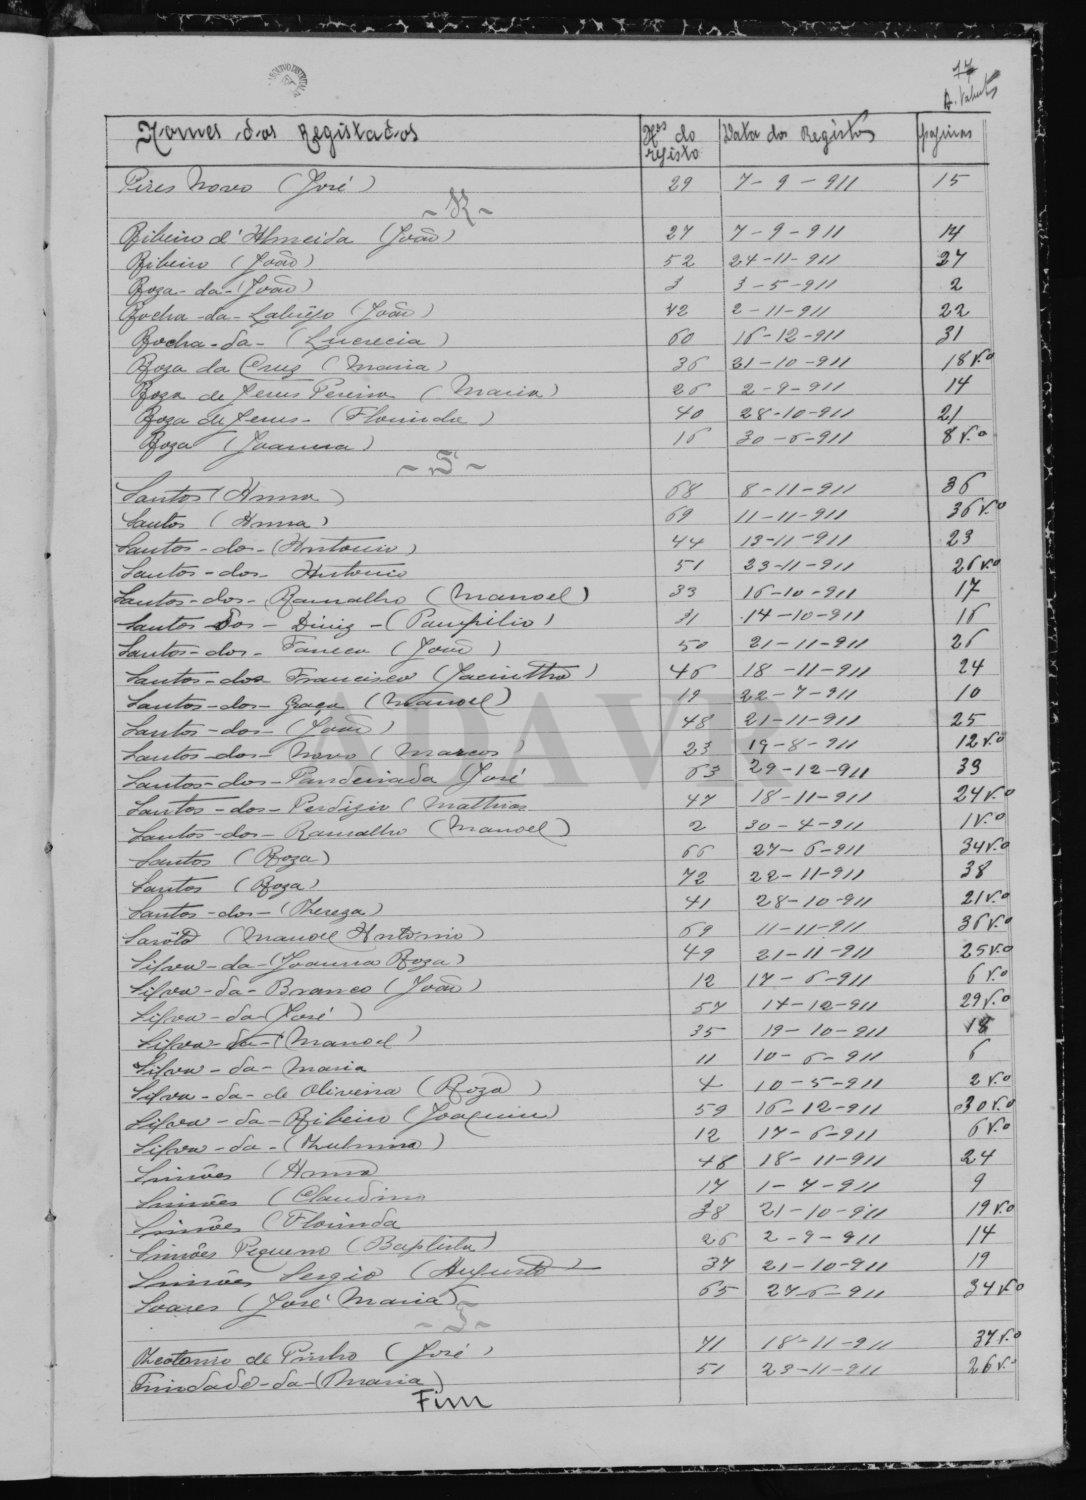 17
Nomes dos Registados Nos do registo Data dos Registos paginas
Pires Novo (José) 29 7-9-911 15
-R-
Ribeiro d'Almeida (João) 27 7-9-911 14
Ribeiro (João) 52 24-11-911 27
Roza-da-(João) 3 3-5-911 2
Rocha-da- (João) 42 2-11-911 22
Rocha-da-(Lucrecia) 60 16-12-911 31
Roza da Cruz (Maria) 36 21-10-911 18 v.o
Roza de Jesus Pereira (Maria) 26 2-9-911 14
Roza de Jesus-(Florinda) 40 28-10-911 21
Roza (Joanna) 16 30-6-911 8 v.o
-S-
Santos (Anna) 68 8-11-911 36
Santos (Anna) 69 11-11-911 36 v.o
Santos-dos-(Antonio) 44 13-11-911 23
Santos-dos-Antonio 51 23-11-911 26 v.o
Santos-dos-Ramalho (Manoel) 33 16-10-911 17
Santos Dos-Diniz-(Pampilio) 31 14-10-911 16
Santos-dos-Faneco (João) 50 21-11-911 26
Santos-dos Francisco (Jacintho) 46 18-11-911 24
Santos-dos-Graça (Manoel) 19 22-7-911 10
Santos-dos-(João) 48 21-11-911 25
Santos-dos-Novo (Marcos) 23 19-8-911 12 v.o
Santos-dos-Pandeirada (José 63 29-12-911 33
Santos-dos-Perdigão (Mathias 47 18-11-911 24 v.o
Santos-dos-Ramalho (Manoel) 2 30-4-911 1 v.o
Santos (Roza) 66 27-6-911 34 v.o
Santos (Roza) 72 22-11-911 38
Santos-dos-(Thereza) 41 28-10-911 21 v.o
(Manoel Antonio) 69 11-11-911 36 v.o
Silva-da-(Joanna Roza) 49 21-11-911 25 v.o
Silva-da-Branco (João) 12 17-6-911 6 v.o
Silva-da-(José) 57 14-12-911 29 v.o
Silva-da-(Manoel) 35 19-10-911 18
Silva-da-Maria 11 10-6-911 6
Silva-da-de Oliveira (Roza) 4 10-5-911 2 v.o
Silva-da-Ribeiro (Joaquim) 59 16-12-911 30 v.o
Silva-da- 12 17-6-911 6 v.o
Simões (Anna) 46 18-11-911 24
Simões (Claudino 17 1-7-911 9
Simões (Florinda 38 21-10-911 19 v.o
Simões Pequeno (Baptista) 26 2-9-911 14
Simões Sergio (Augusto) 37 21-10-911 19
Soares (José Maria) 65 27-6-911 34 v.o
-T-
Theotonio de Pinho (José) 71 18-11-911 37 v.o
Trindade-da-(Maria) 51 23-11-911 26 v.o
Fim
ADAVR